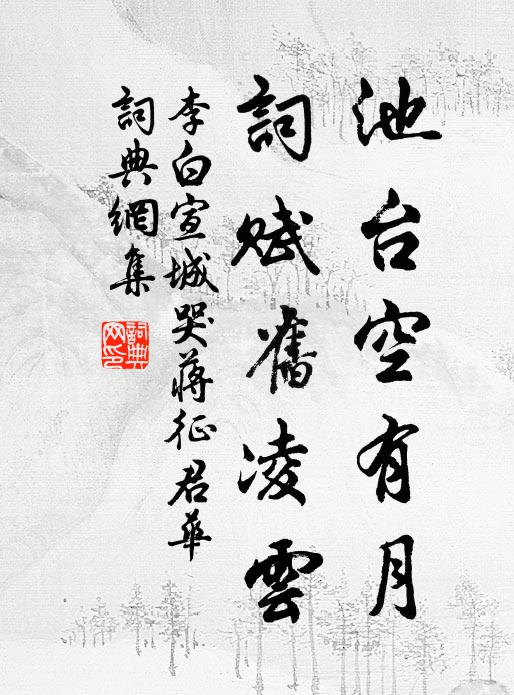 池台空有月
詞赋舊凌雲
李白宣城哭蔣征君華
詞典網集
詞典
网印